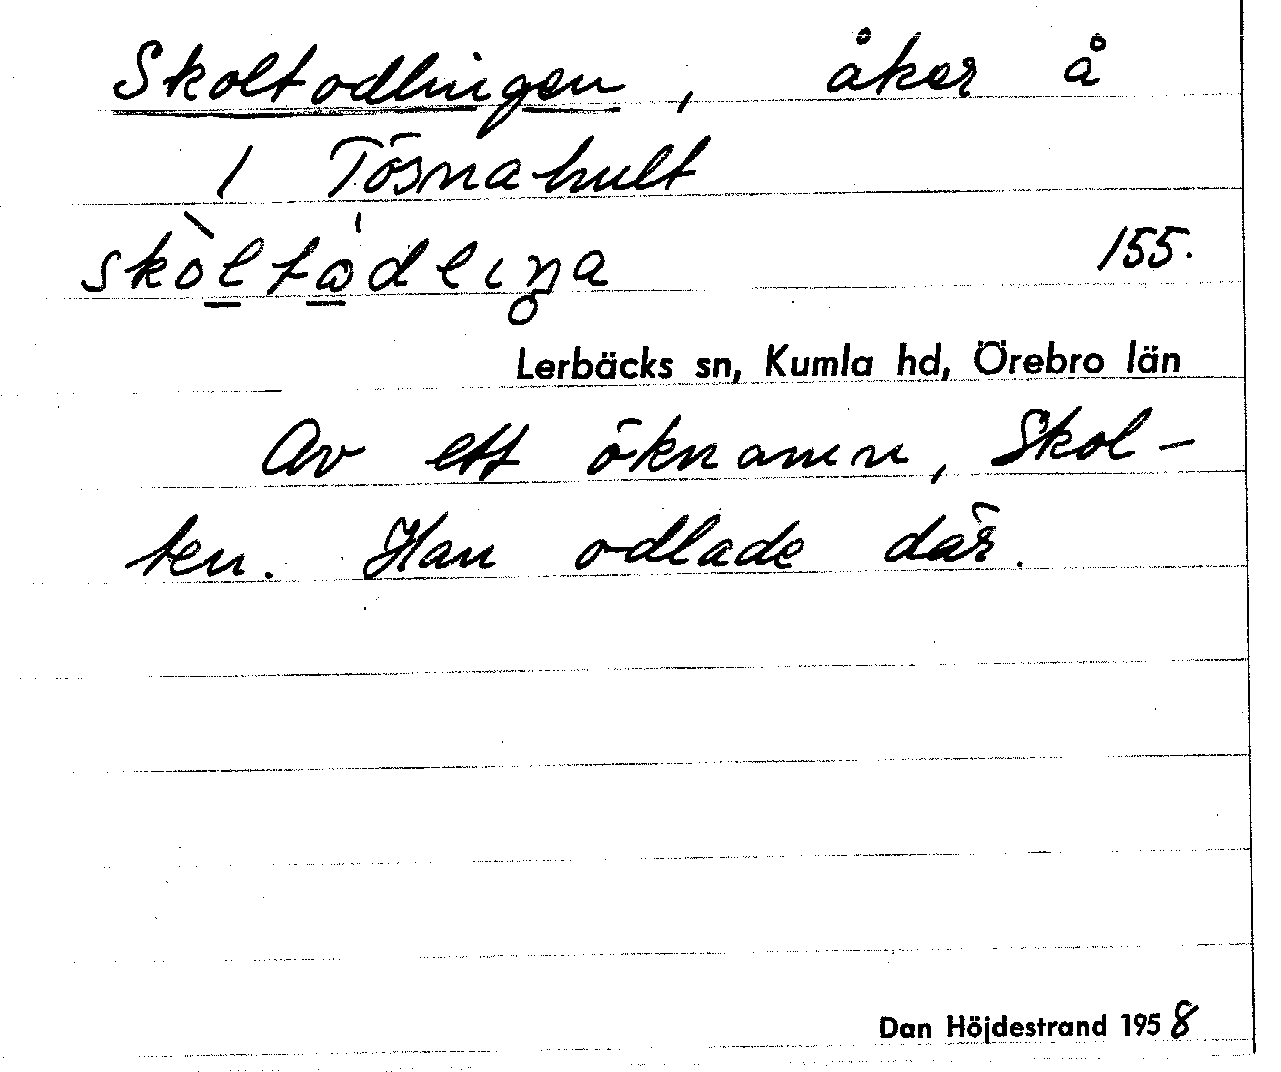 Skoltodlingen, åker å
1 Tösnahult
skòltådlıŋa
155.
Lerbäcks sn, Kumla hd, Örebro län
Av ett öknamn, Skol-
ten. Han odlade där.
Dan Höjdestrand 1958